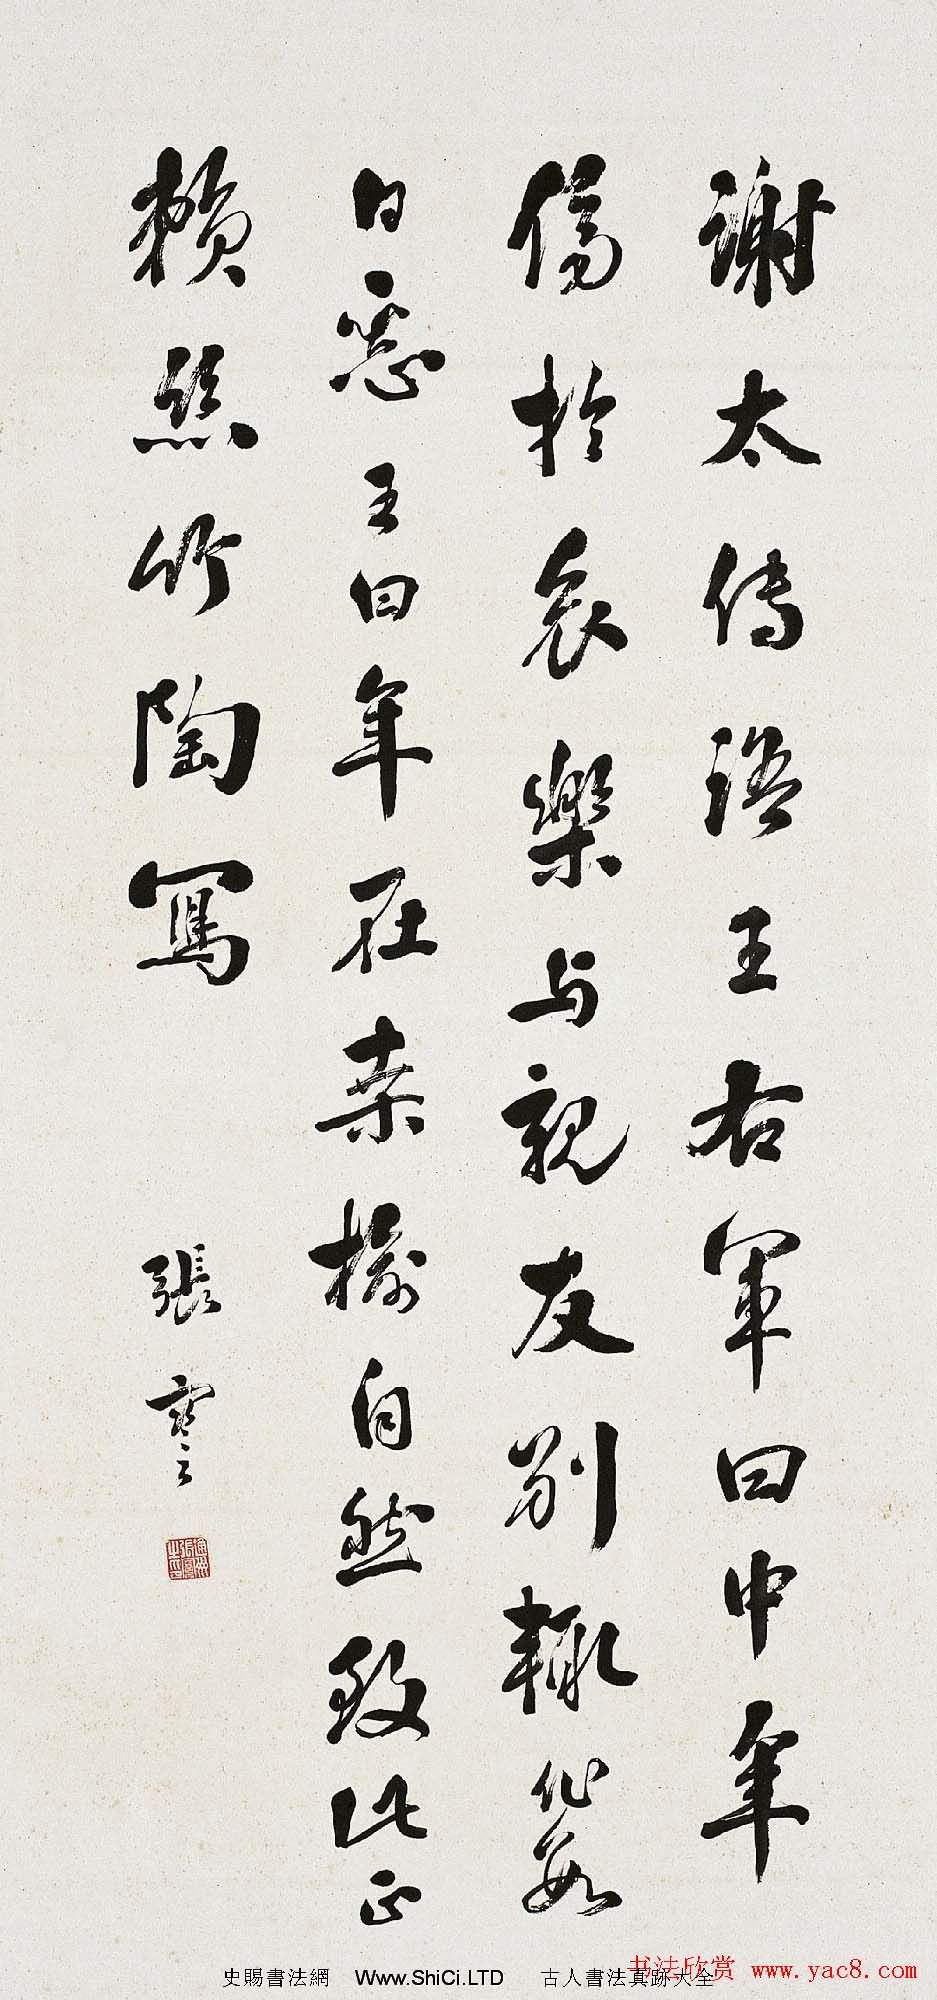 謝太傅語王右軍曰中年
傷於哀樂与親友別輒作數
日惡王曰年在桑榆自然致此正
賴絲竹陶寫
張謇
史賜書法網 Www.ShiCi.LTD 古人書法真跡大全
书法欣赏 www.yac8.com